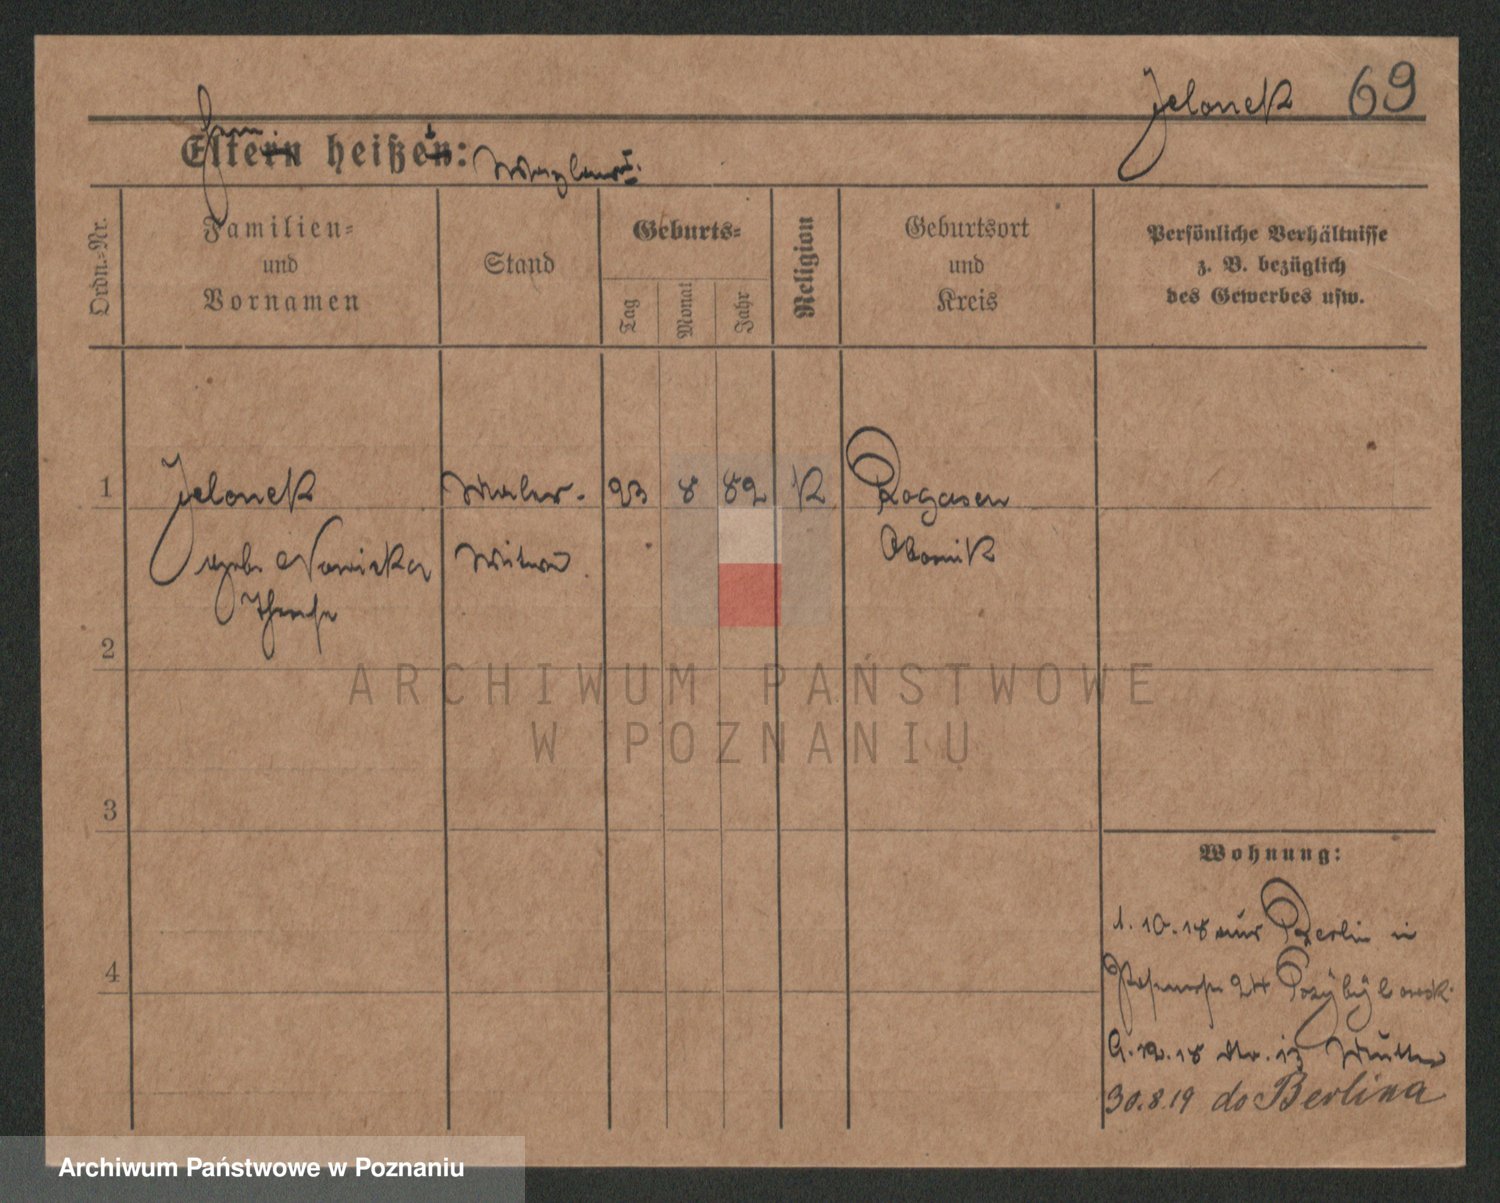 Jelonek 69
Eltern heißen:
Ordn.-Nr.
Familien-
und
Vornamen
Stand
Geburts-
Tag
Monat
Jahr
Religion
Geburtsort
und
Kreis
Persönliche Verhältnisse
z. B. bezüglich
des Gewerbes usw.
1 Jelonek Maler- 23 8 82 K Rogasen
geb. Nowicka Witwe Obornik
2
3
4
Wohnung:
1.10.18 aus Berlin in
24
9.12.18 Mutter
30.8.19 do Berlina
ARCHIWUM PAŃSTWOWE
W POZNANIU
Archiwum Państwowe w Poznaniu